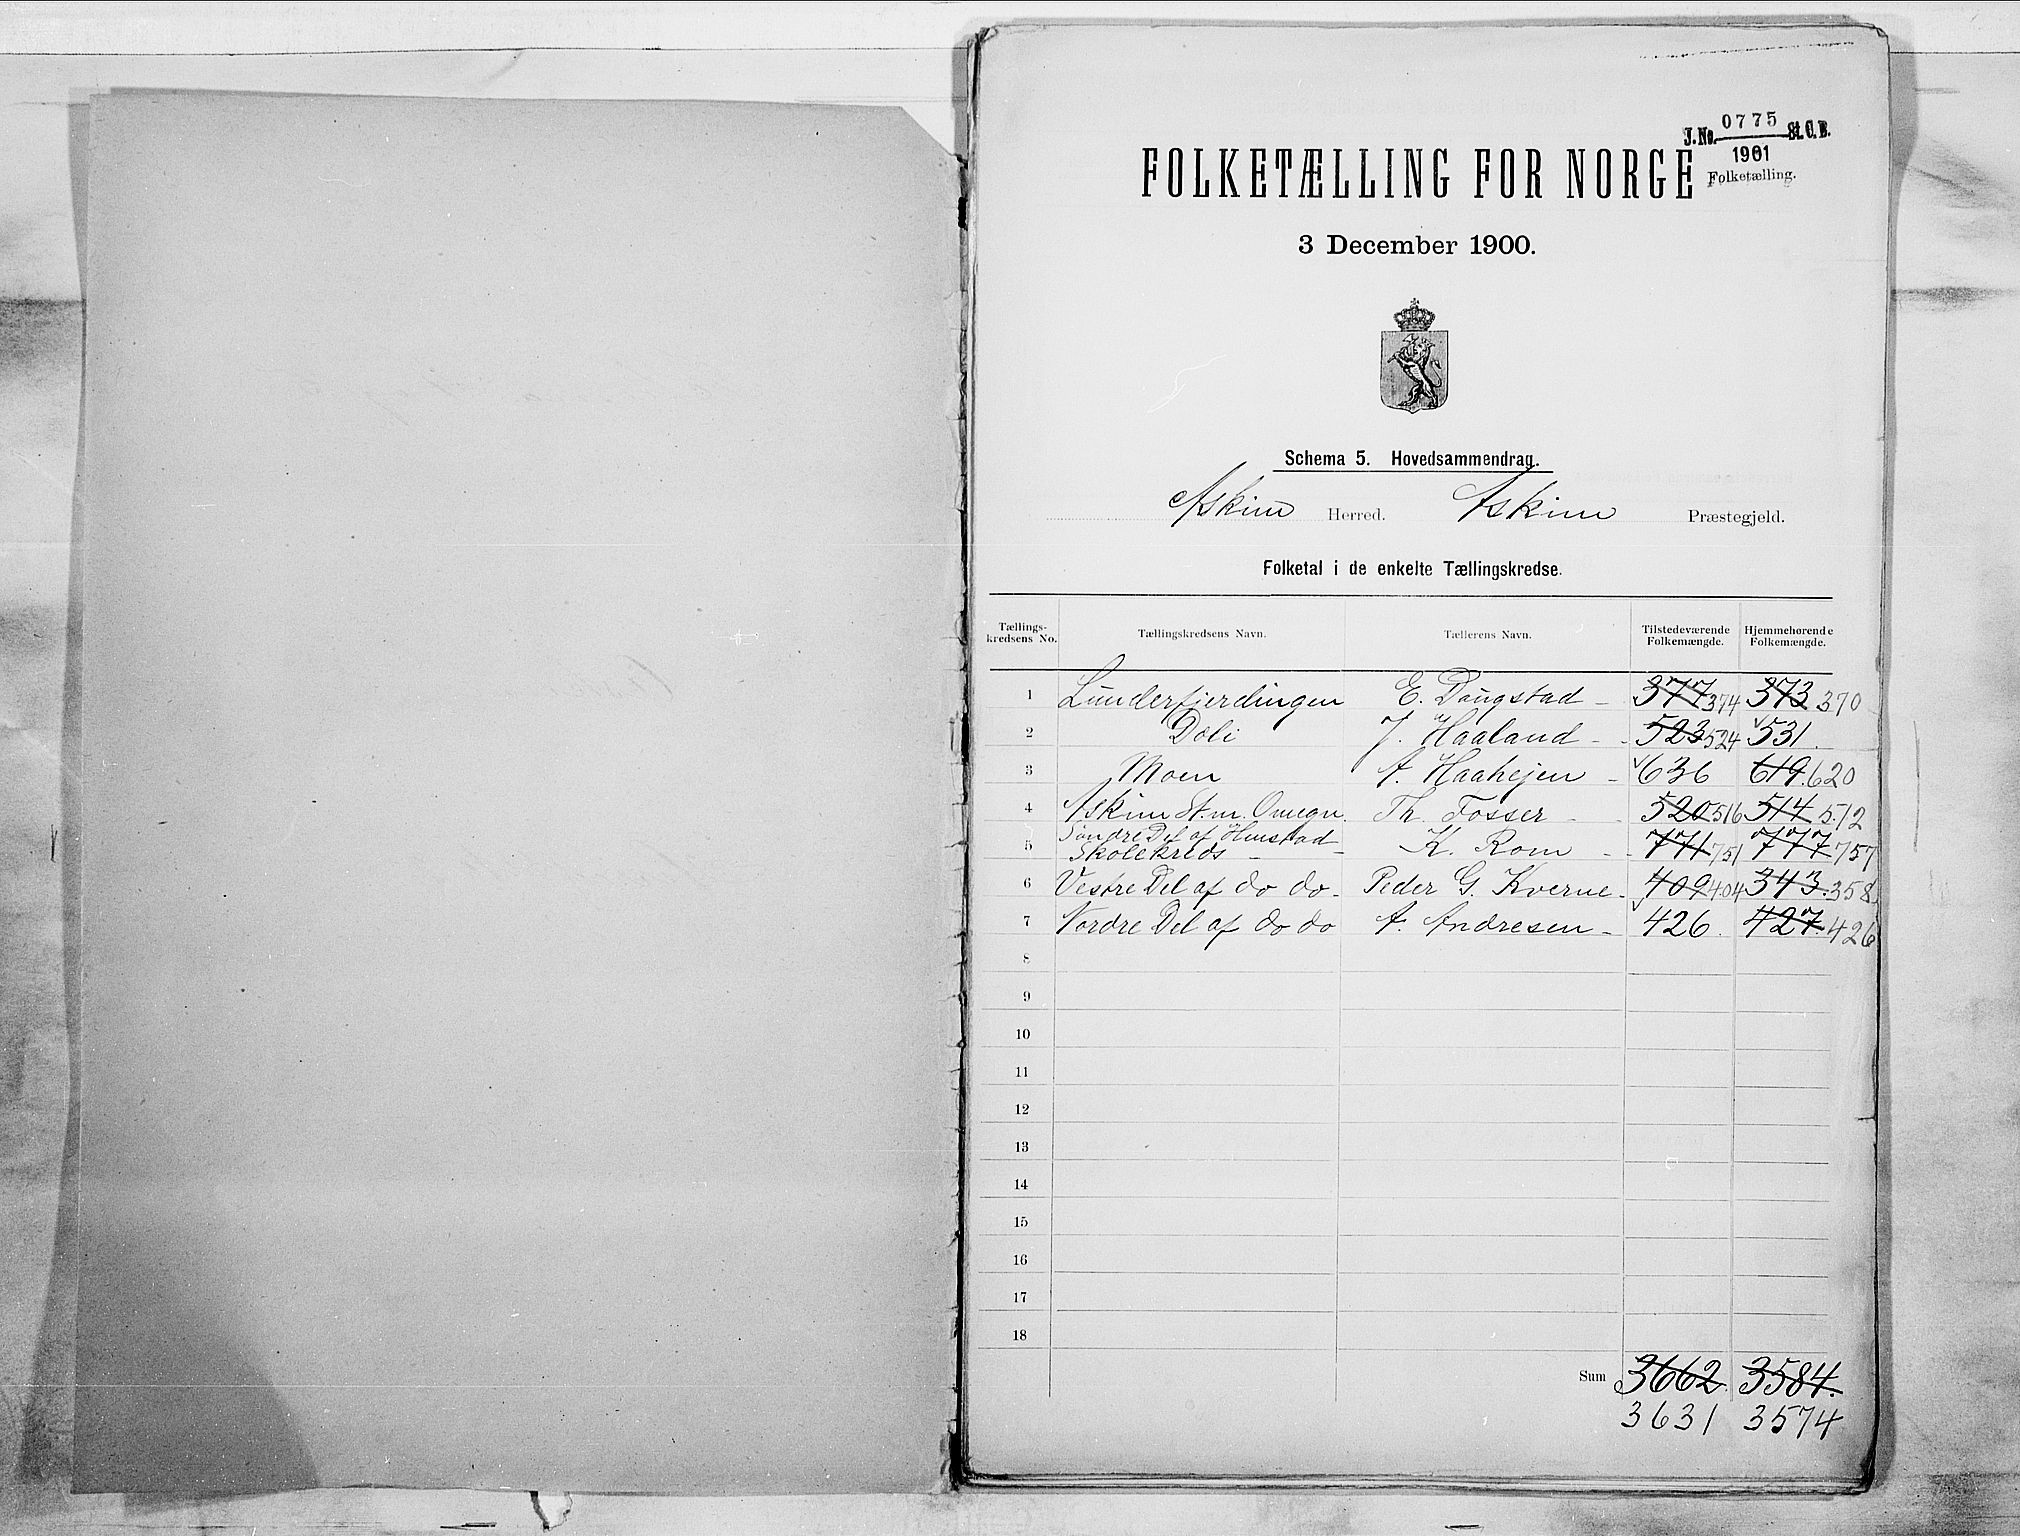 J.No. 0775 St.C.B.
1901
Folketælling.
FOLKETÆLLING FOR NORGE
3 December 1900.
Schema 5. Hovedsammendrag.
Askim Herred. Askim Præstegjeld.
Folketal i de enkelte Tællingskredse.
Tællings-kredsens No. Tællingskredsens Navn. Tællerens Navn. Tilstedeværende Folkemængde. Hjemmehørende Folkemængde.
1 Lunderfjerdingen E. Daugstad - 377 374 373 370
2 Doli J. Haaland - 523 524 531.
3 Moen A. Haahejen - 636 619. 620
4 Askim St. m. Omegn. Th. Fosser - 520 516 514 512
5 Søndre Del af Henstad Skolekreds - K. Rom - 771 751 777 757
6 Vestre Del af do do - Peder G. Kverne - 409 404 343. 358
7 Nordre Del af do do A. Andresen - 426. 427. 426
8
9
10
11
12
13
14
15
16
17
18
Sum 3662 3584.
3631 3574